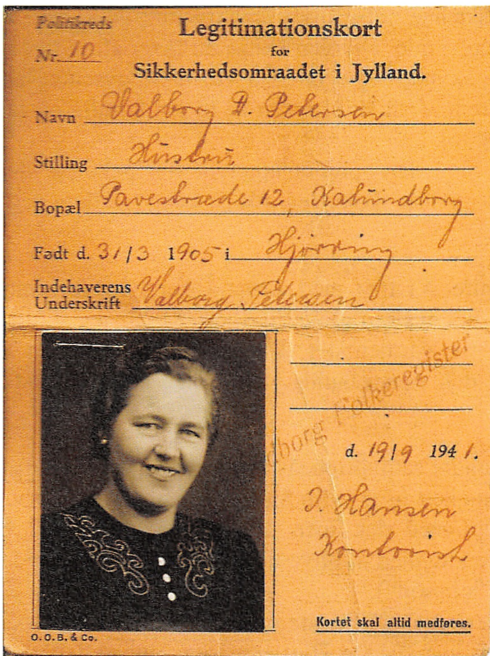 Politikreds
Nr. 10
Legitimationskort
for
Sikkerhedsomraadet i Jylland.
Navn Valborg D. Petersen
Stilling Hustru
Bopæl Pavestræde 12, Kalundborg
Født d. 31/3 1905 i Hjørring
Indehaverens
Underskrift Valborg Petersen
dborg Folkeregister
d. 19/9 1941.
J. Hansen
Kontorist
Kortet skal altid medføres.
O. O. B. & Co.